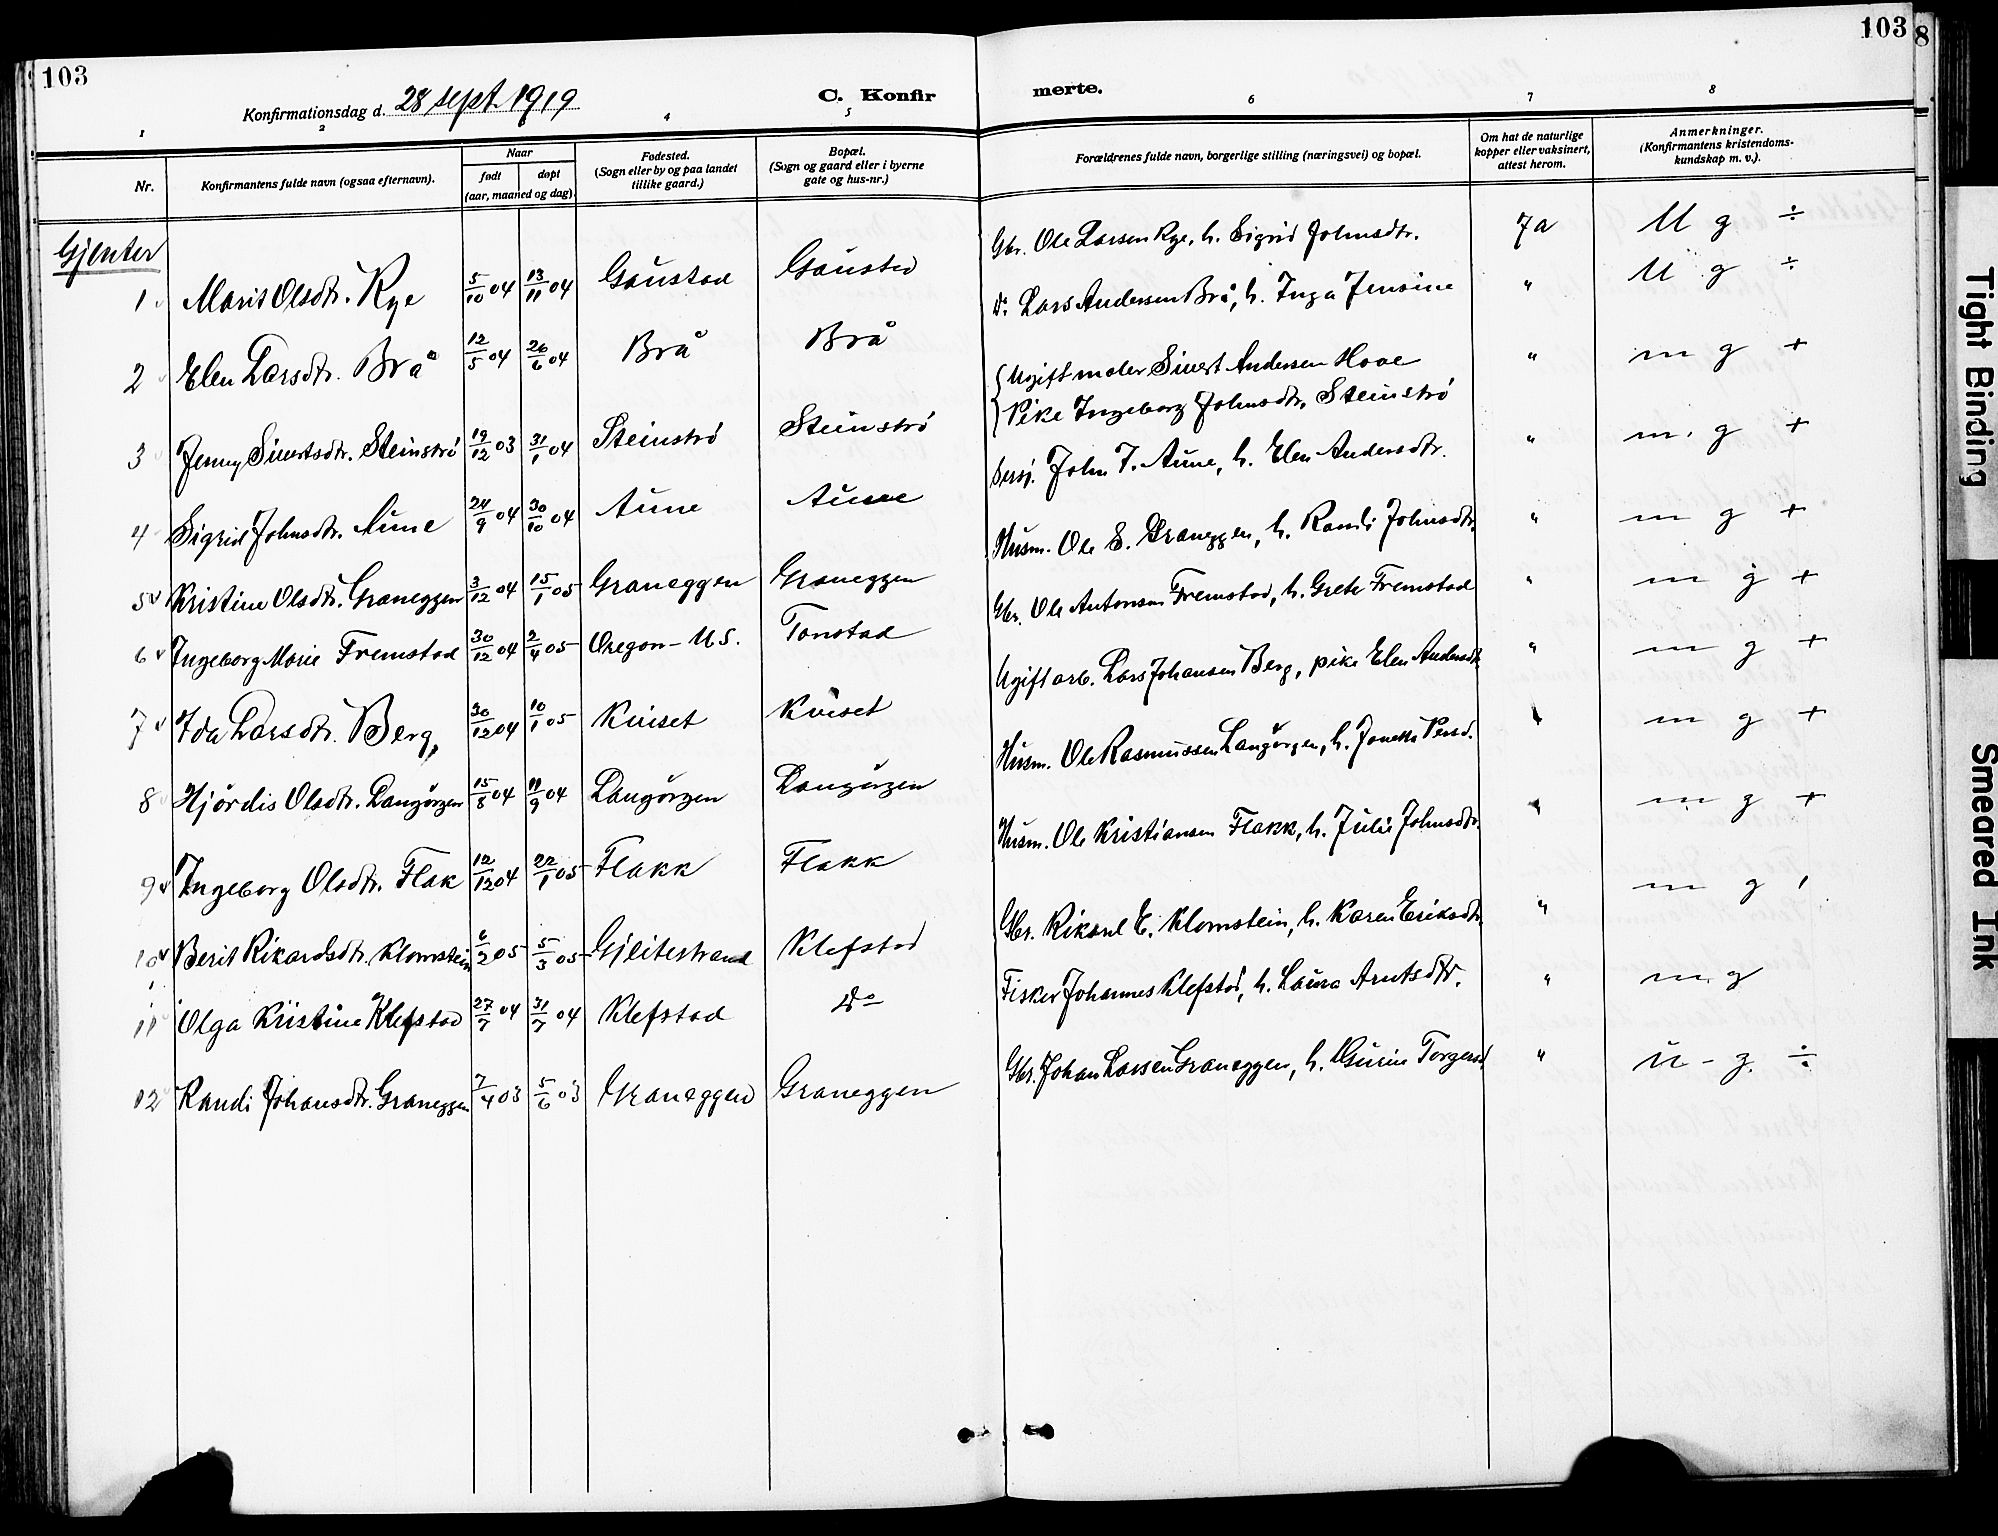 103
Konfirmationsdag d. 28 sept. 1919
C. Konfir
merte.
103
8
1 2 3 4 5 6 7 8
Nr. Konfirmantens fulde navn (ogsaa efternavn). Naar født døpt (aar, maaned og dag). Fødested. (Sogn eller by og paa landet tillike gaard.) Bopæl. (Sogn og gaard eller i byerne gate og hus-nr.) Forældrenes fulde navn, borgerlige stilling (næringsvei) og bopæl. Om hat de naturlige kopper eller vaksinert, attest herom. Anmerkninger. (Konfirmantens kristendoms-kundskap m. v.).
Gjenter
1 Marit Olsdtr. Rye 5/10 04 13/11 04 Gaustad Gaustad Gbr. Ole Larsen Rye, h. Sigrid Johnsdtr. Ja U g ÷
2 Elen Larsdtr. Brå 12/5 04 26/6 04 Brå Brå Do Lars Andersen Brå, h. Inga Jensine " U g ÷
3 Jenny Sivertsdtr. Steinströ 19/12 03 31/1 04 Steinströ Steinströ { Ugift maler Sivert Andersen Hove
Pike Ingeborg Johnsdtr. Steinströ " m g +
4 Sigrid Johnsdtr. Aune 24/9 04 30/10 04 Aune Aune Sersj. John J. Aune, h. Elen Andersdtr. " m. g +
5 Kristine Olsdtr. Graneggen 3/12 04 15/1 05 Graneggen Graneggen Husm. Ole E. Graneggen, h. Randi Johnsdtr. " m g +
6 Ingeborg Marie Fremstad 30/12 04 2/4 05 Oregon - U S. Tonstad Gbr. Ole Antonsen Fremstad, h. Grete Fremstad " m g +
7 Ida Larsdtr. Berg, 30/12 04 10/1 05 Kviset Kviset Ugift arb. Lars Johansen Berg, pike Elen Andersdtr " m g +
8 Hjördis Olsdtr. Langörgen 15/8 04 11/9 04 Langörgen Langörgen Husm. Ole Rasmussen Langörgen, h. Jonetta Persd. " m g +
9 Ingeborg Olsdtr. Flak 12/12 04 22/1 05 Flakk Flakk Husm. Ole Kristiansen Flakk, h. Julie Johnsdtr. " m g +
10 Berit Rikardsdtr. Klomstein 6/2 05 5/3 05 Gjeitestrand Klefstad Gbr. Rikard E. Klomstein, h. Karen Eriksdtr. " m g
11 Olga Kristine Klefstad 27/7 04 31/7 04 Klefstad Do Fisker Johannes Klefstad, h. Laura Arntsdtr. " m g
12 Randi Johansdtr. Graneggen 7/4 03 5/6 03 Graneggen Graneggen Gbr. Johan Larsen Graneggen, h. Guru Torgersd " u - g. ÷
Tight Binding
Smeared Ink